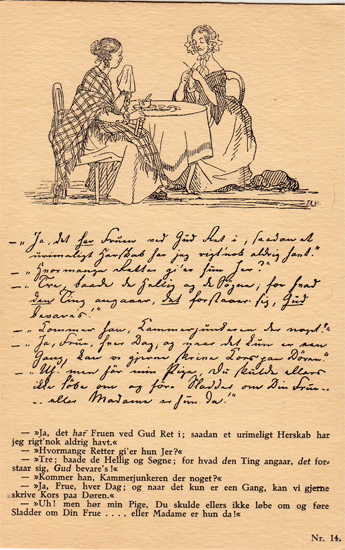 — „Ja, det har Fruen ved Gud Ret i, saadan et
urimeligt Herskab har jeg rigt'nok aldrig havt."
— „Hvormange Retter gi'er hun Jer?"
— „Tre, baade de Hellig og de Søgne; for hvad
den Ting angaaer, det forstaaer sig, Gud
bevares!"
— „Kommer han, Kammerjunkeren der noget?"
— „Ja, Frue, hver Dag, og naar det kun er een
Gang, kan vi gjerne skrive Kors paa Døren."
— „Uh! men hør min Pige, Du skulde ellers
ikke løbe om og føre Sladder om Din Frue..
.. eller Madame er hun da!"
— »Ja, det har Fruen ved Gud Ret i; saadan et urimeligt Herskab har
jeg rigt'nok aldrig havt.«
— »Hvormange Retter gi'er hun Jer?«
— »Tre; baade de Hellig og Søgne; for hvad den Ting angaar, det for-
staar sig, Gud bevare's!«
— »Kommer han, Kammerjunkeren der noget?«
— »Ja, Frue, hver Dag; og naar det kun er een Gang, kan vi gjerne
skrive Kors paa Døren.«
— »Uh! men hør min Pige, Du skulde ellers ikke løbe om og føre
Sladder om Din Frue .... eller Madame er hun da!«
Nr. 14.